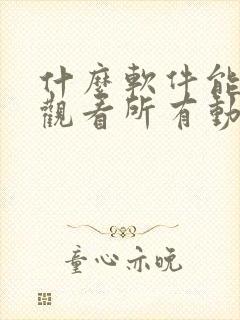 什麼軟件能
觀看所有動
童心亦晚